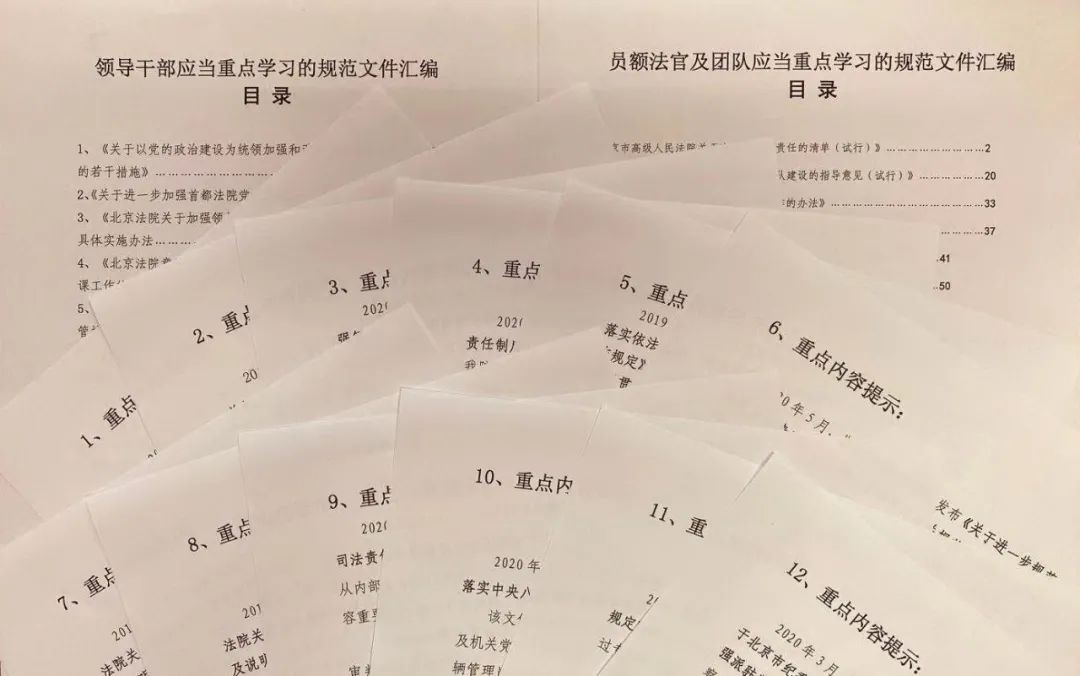 领导干部应当重点学习的规范文件汇编
目 录
1、《关于以党的政治建设为统领加强和
的若干措施》……………………
2、《关于进一步加强首都法院党
3、《北京法院关于加强领
具体实施办法…………
4、《北京法院
课工作
5、
员额法官及团队应当重点学习的规范文件汇编
目 录
市高级人民法院关
责任的清单（试行）》……………………2
建设的指导意见（试行）》………………20
的办法》……………………………33
………37
41
50
1、重点
2、重点
20
3、重点
2020
4、重点
2020
责任制
5、重点
2019
落实依法
规定》
贯
6、重点内容提示：
年5月，
发布《关于进一步规范
7、重点
201
法院关
8、重点
201
法院关
及说明
9、重点
2020
司法责任
从内部
容重要
审判
10、重点内
2020 年
落实中央八
该文件
及机关党
辆管理
11、重
规定
过
12、重点内容提示：
2020年3月
于北京市纪
强派驻